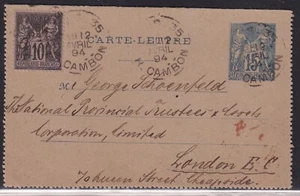 CARTE-LETTRE
10
15
12
AVRIL
94
CAMBON
12
AVRIL
94
CAMBON
M George Schoenfeld
The National Provincial Trustees &
Corporation, Limited
London E.C
Street, Cheapside